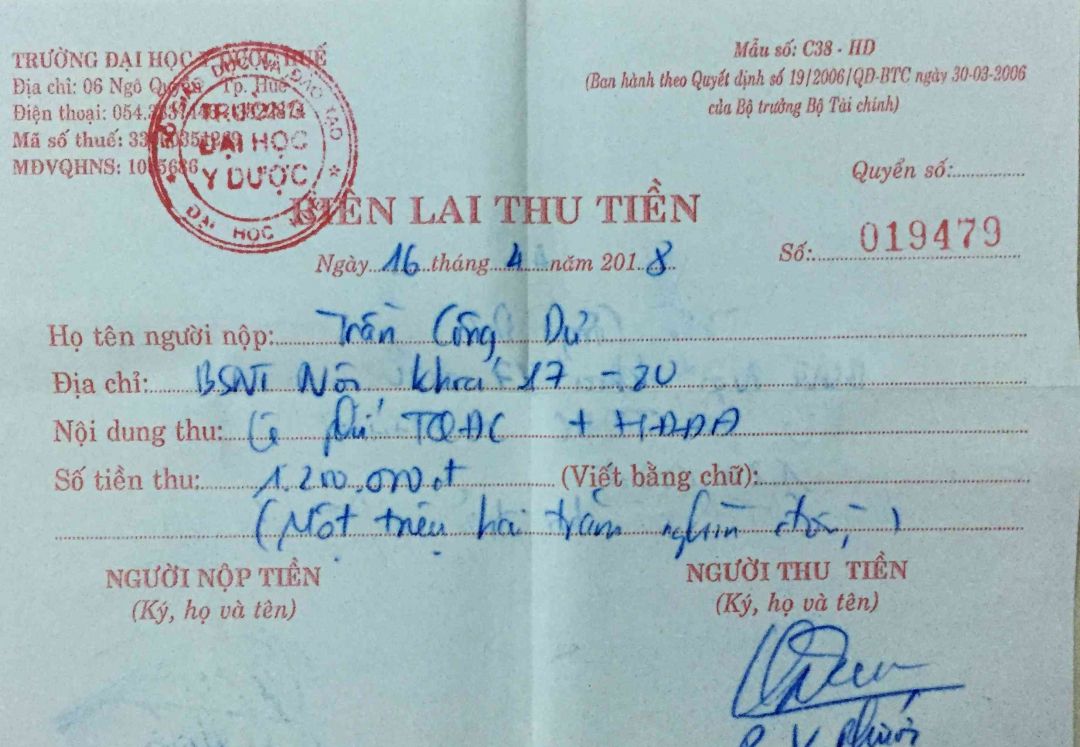 TRƯỜNG ĐẠI HỌC Y DƯỢC HUẾ
Địa chỉ: 06 Ngô Quyền Tp. Huế
Điện thoại:
Mã số thuế:
MĐVQHNS:
TRƯỜNG
ĐẠI HỌC
Y DƯỢC
Mẫu số: C38 - HD
(Ban hành theo Quyết định số 19/2006/QĐ-BTC ngày 30-03-2006
của Bộ trưởng Bộ Tài chính)
Quyển số:
BIÊN LAI THU TIỀN
Ngày 16 tháng 4 năm 2018
Số: 019479
Họ tên người nộp: Trần Công
Địa chỉ: BSNT Nội khoá 17 - 20
Nội dung thu: TQĐC + HĐĐA
Số tiền thu: 1.200.000đ (Viết bằng chữ):
(Một triệu hai trăm nghìn đồng)
NGƯỜI NỘP TIỀN
(Ký, họ và tên)
NGƯỜI THU TIỀN
(Ký, họ và tên)